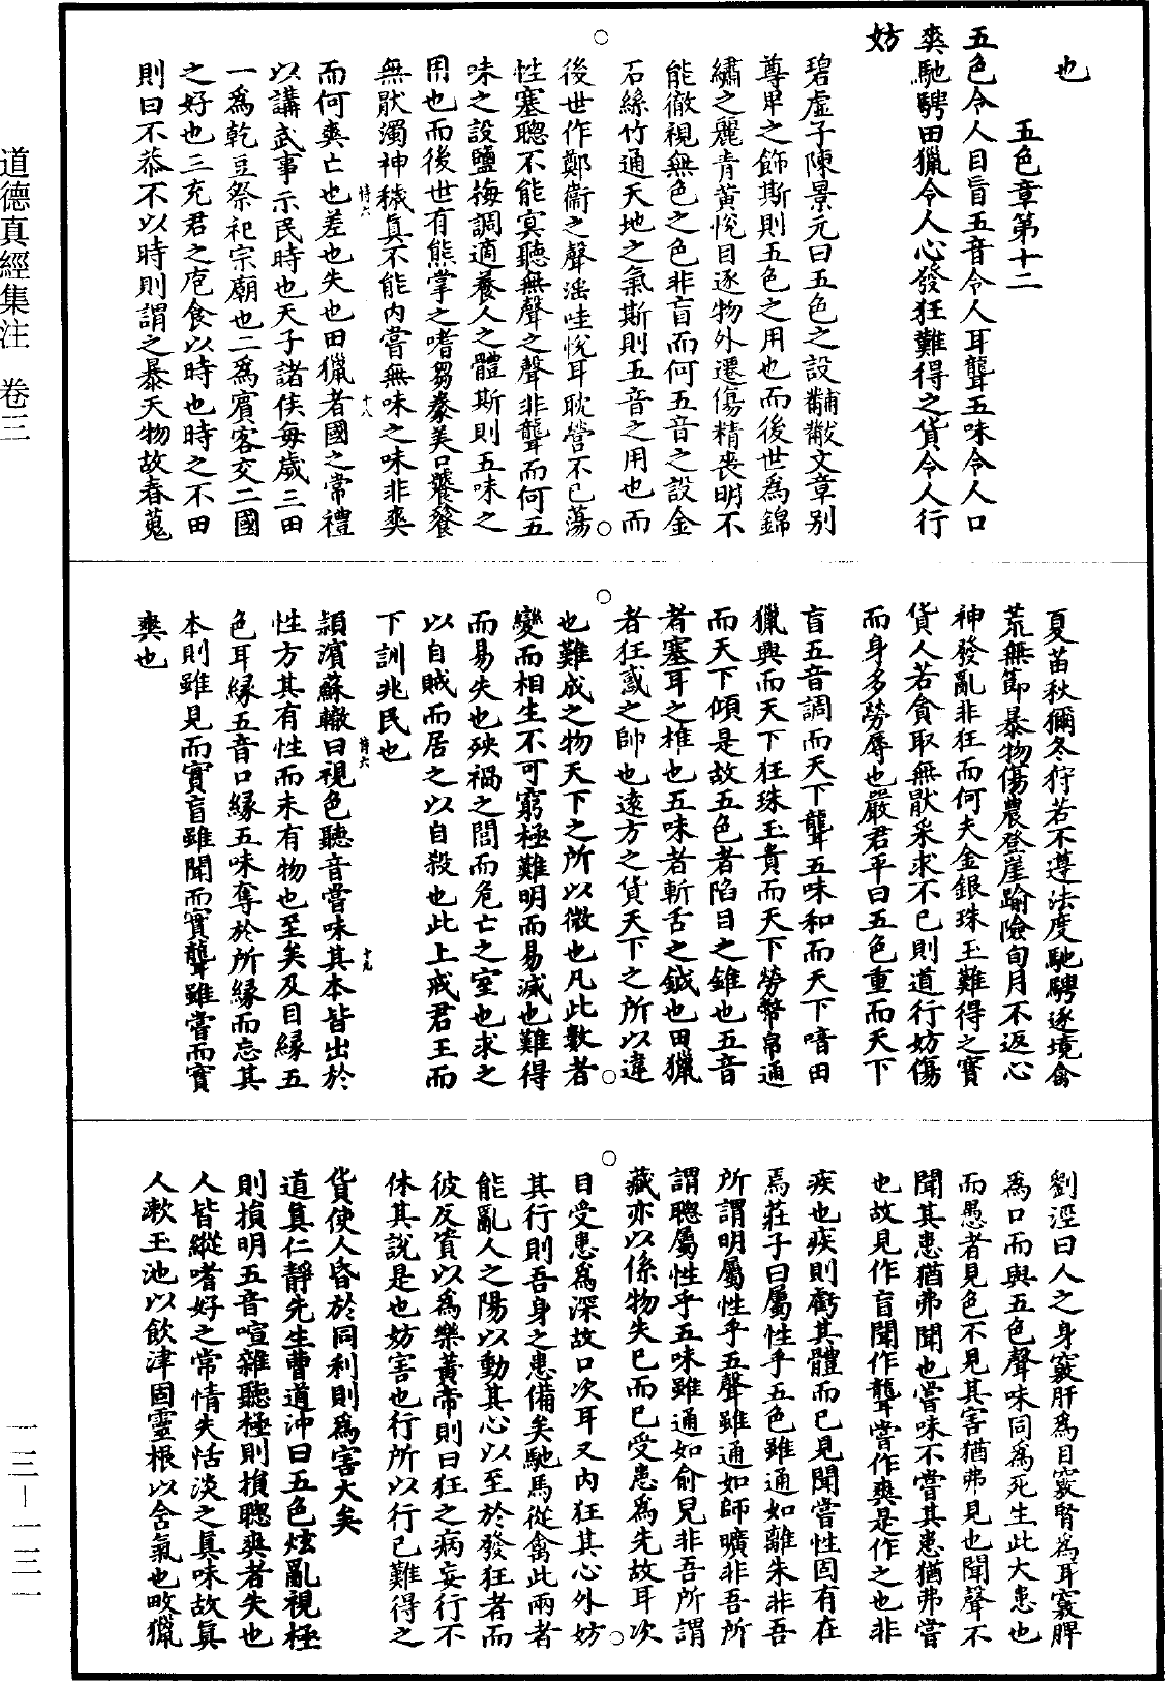 也
五色章第十二
五色令人目盲五音令人耳聾五味令人口
爽馳騁田獵令人心發狂難得之貨令人行
妨
碧虛子陳景元曰五色之設黼黻文章别
尊卑之飾斯則五色之用也而後世爲錦
繡之麗青黃悅目逐物外遷傷精喪明不
能徹視無色之色非盲而何五音之設金
石絲竹通天地之氣斯則五音之用也而
後世作鄭衞之聲滛哇悅耳耽營不已蕩
性塞聰不能冥聽無聲之聲非聾而何五
味之設鹽梅調適養人之體斯則五味之
用也而後世有熊掌之嗜芻豢美口饕餮
無猒濁神穢真不能内嘗無味之味非爽
而何爽亡也差也失也田獵者國之常禮
以講武事示民時也天子諸侯每歲三田
一爲乾豆祭祀宗廟也二爲賓客交二國
之好也三充君之庖食以時也時之不田
則曰不恭不以時則謂之暴天物故春蒐
夏苗秋獮冬狩若不遵法度馳騁逐境禽
荒無節暴物傷農登崖踰險旬月不返心
神發亂非狂而何夫金銀珠玉難得之寶
貨人若貪取無猒采求不已則道行妨傷
而身多勞辱也嚴君平曰五色重而天下
盲五音調而天下聾五味和而天下喑田
獵興而天下狂珠玉貴而天下勞幣帛通
而天下傾是故五色者陷目之錐也五音
者塞耳之椎也五味者斬舌之鉞也田獵
者狂惑之帥也遠方之貨天下之所以違
也難成之物天下之所以微也凡此數者
變而相生不可窮極難明而易滅也難得
而易失也殃禍之閭而危亡之室也求之
以自賊而居之以自殺也此上戒君王而
下訓兆民也
潁濱蘇轍曰視色聽音嘗味其本皆出於
性方其有性而未有物也至矣及目緣五
色耳緣五音口緣五味奪於所緣而忘其
本則雖見而實盲雖聞而實聾雖嘗而實
爽也
劉涇曰人之身竅肝爲目竅腎爲耳竅脾
爲口而與五色聲味同爲死生此大患也
而愚者見色不見其害猶弗見也聞聲不
聞其患猶弗聞也嘗味不嘗其患猶弗嘗
也故見作盲聞作聾嘗作爽是作之也非
疾也疾則虧其體而已見聞嘗性固有在
焉莊子曰屬性乎五色雖通如離朱非吾
所謂明屬性乎五聲雖通如師曠非吾所
謂聰屬性乎五味雖通如俞兒非吾所謂
藏亦以係物失已而已受患爲先故耳次
目受患爲深故口次耳又内狂其心外妨
其行則吾身之患備矣馳馬從禽此兩者
能亂人之陽以動其心以至於發狂者而
彼反賓以爲樂黃帝則曰狂之病妄行不
休其說是也妨害也行所以行已難得之
貨使人昏於同利則爲害大矣
道真仁靜先生曹道沖曰五色炫亂視極
則損明五音喧雜聽極則損聰爽者失也
人皆縱嗜好之常情失恬淡之真味故真
人漱玉池以飲津固靈根以含氣也畋獵
道德真經集注 卷三
一三－一三一
恃六 十八
恃六 十九